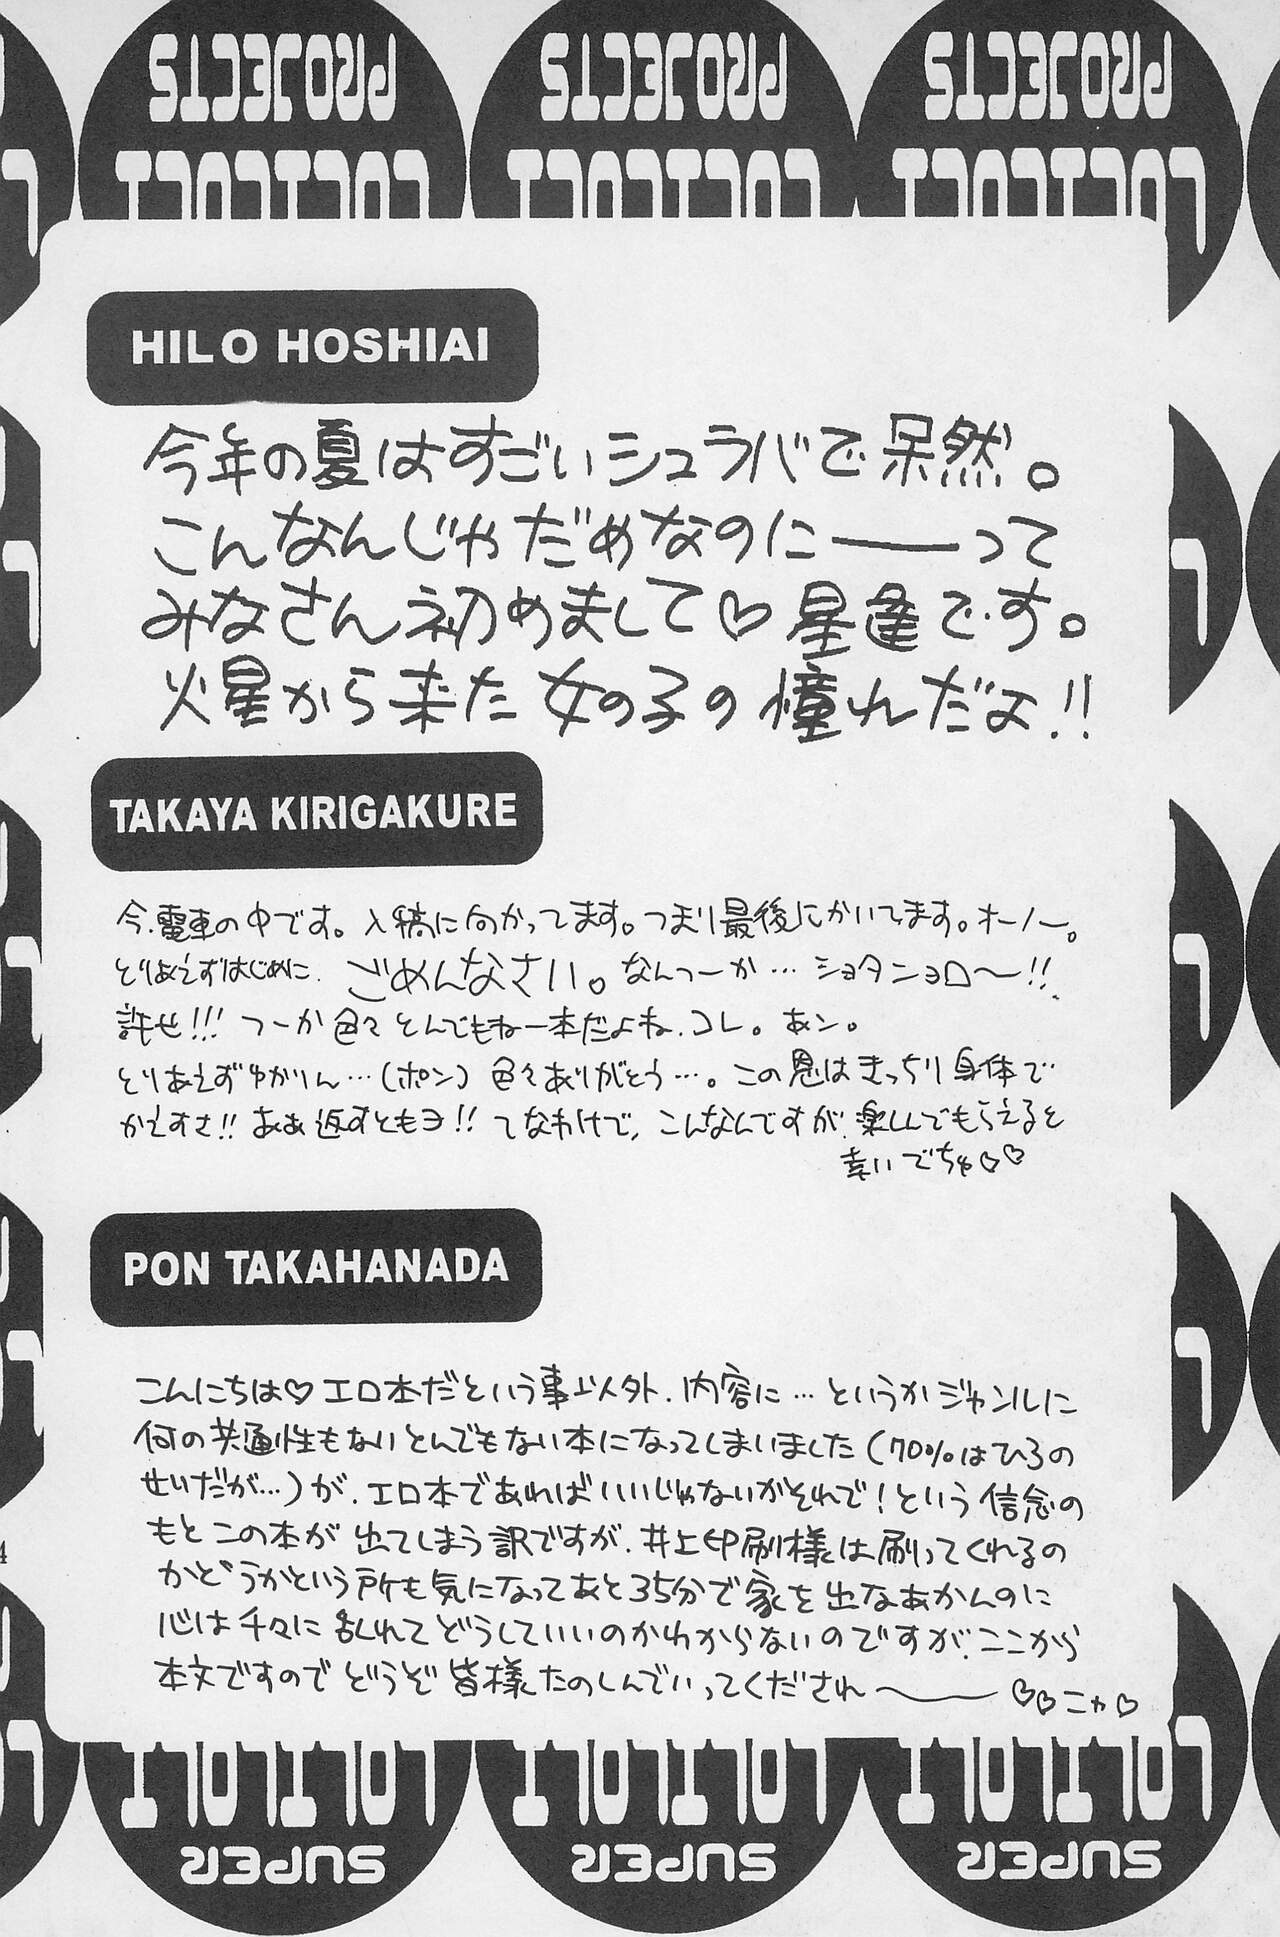 PROJECTS PROJECTS PROJECTS
LOLILOLI LOLILOLI LOLILOLI
HILO HOSHIAI
今年の夏はすごいシュラバで呆然。
こんなんじゃだめなのに――って
みなさん初めまして♡星逢です。
火星から来た女の子の憧れだよ!!
TAKAYA KIRIGAKURE
今、電車の中です。入稿に向かってます。つまり最後にかいてます。オーノー。
とりあえずはじめに、ごめんなさい。なんつーか…ショタンョロ〜!!
許せ!!! つーか色々とんでもねー本だよね、コレ。あン。
とりあえずゆかりん…(ポン)色々ありがとう…。この恩はきっちり身体で
かえすさ!! ああ返すともヨ!! てなわけで、こんなんですが、楽しんでもらえると
幸いでちゅ♡♡
PON TAKAHANADA
こんにちは♡エロ本だという事以外、内容に…というかジャンルに
何の共通性もないとんでもない本になってしまいました(70%はひろの
せいだが…)が、エロ本であればいいじゃないかそれで!という信念の
もとこの本が出てしまう訳ですが、井上印刷様は刷ってくれるの
かどうかという所も気になってあと35分で家を出なあかんのに
心は千々に乱れてどうしていいのかわからないのですが、ここから
本文ですのでどうぞ皆様たのしんでいってくだされ〜 ♡♡ニャ♡
4
LOLILOLI LOLILOLI LOLILOLI
SUPER SUPER SUPER